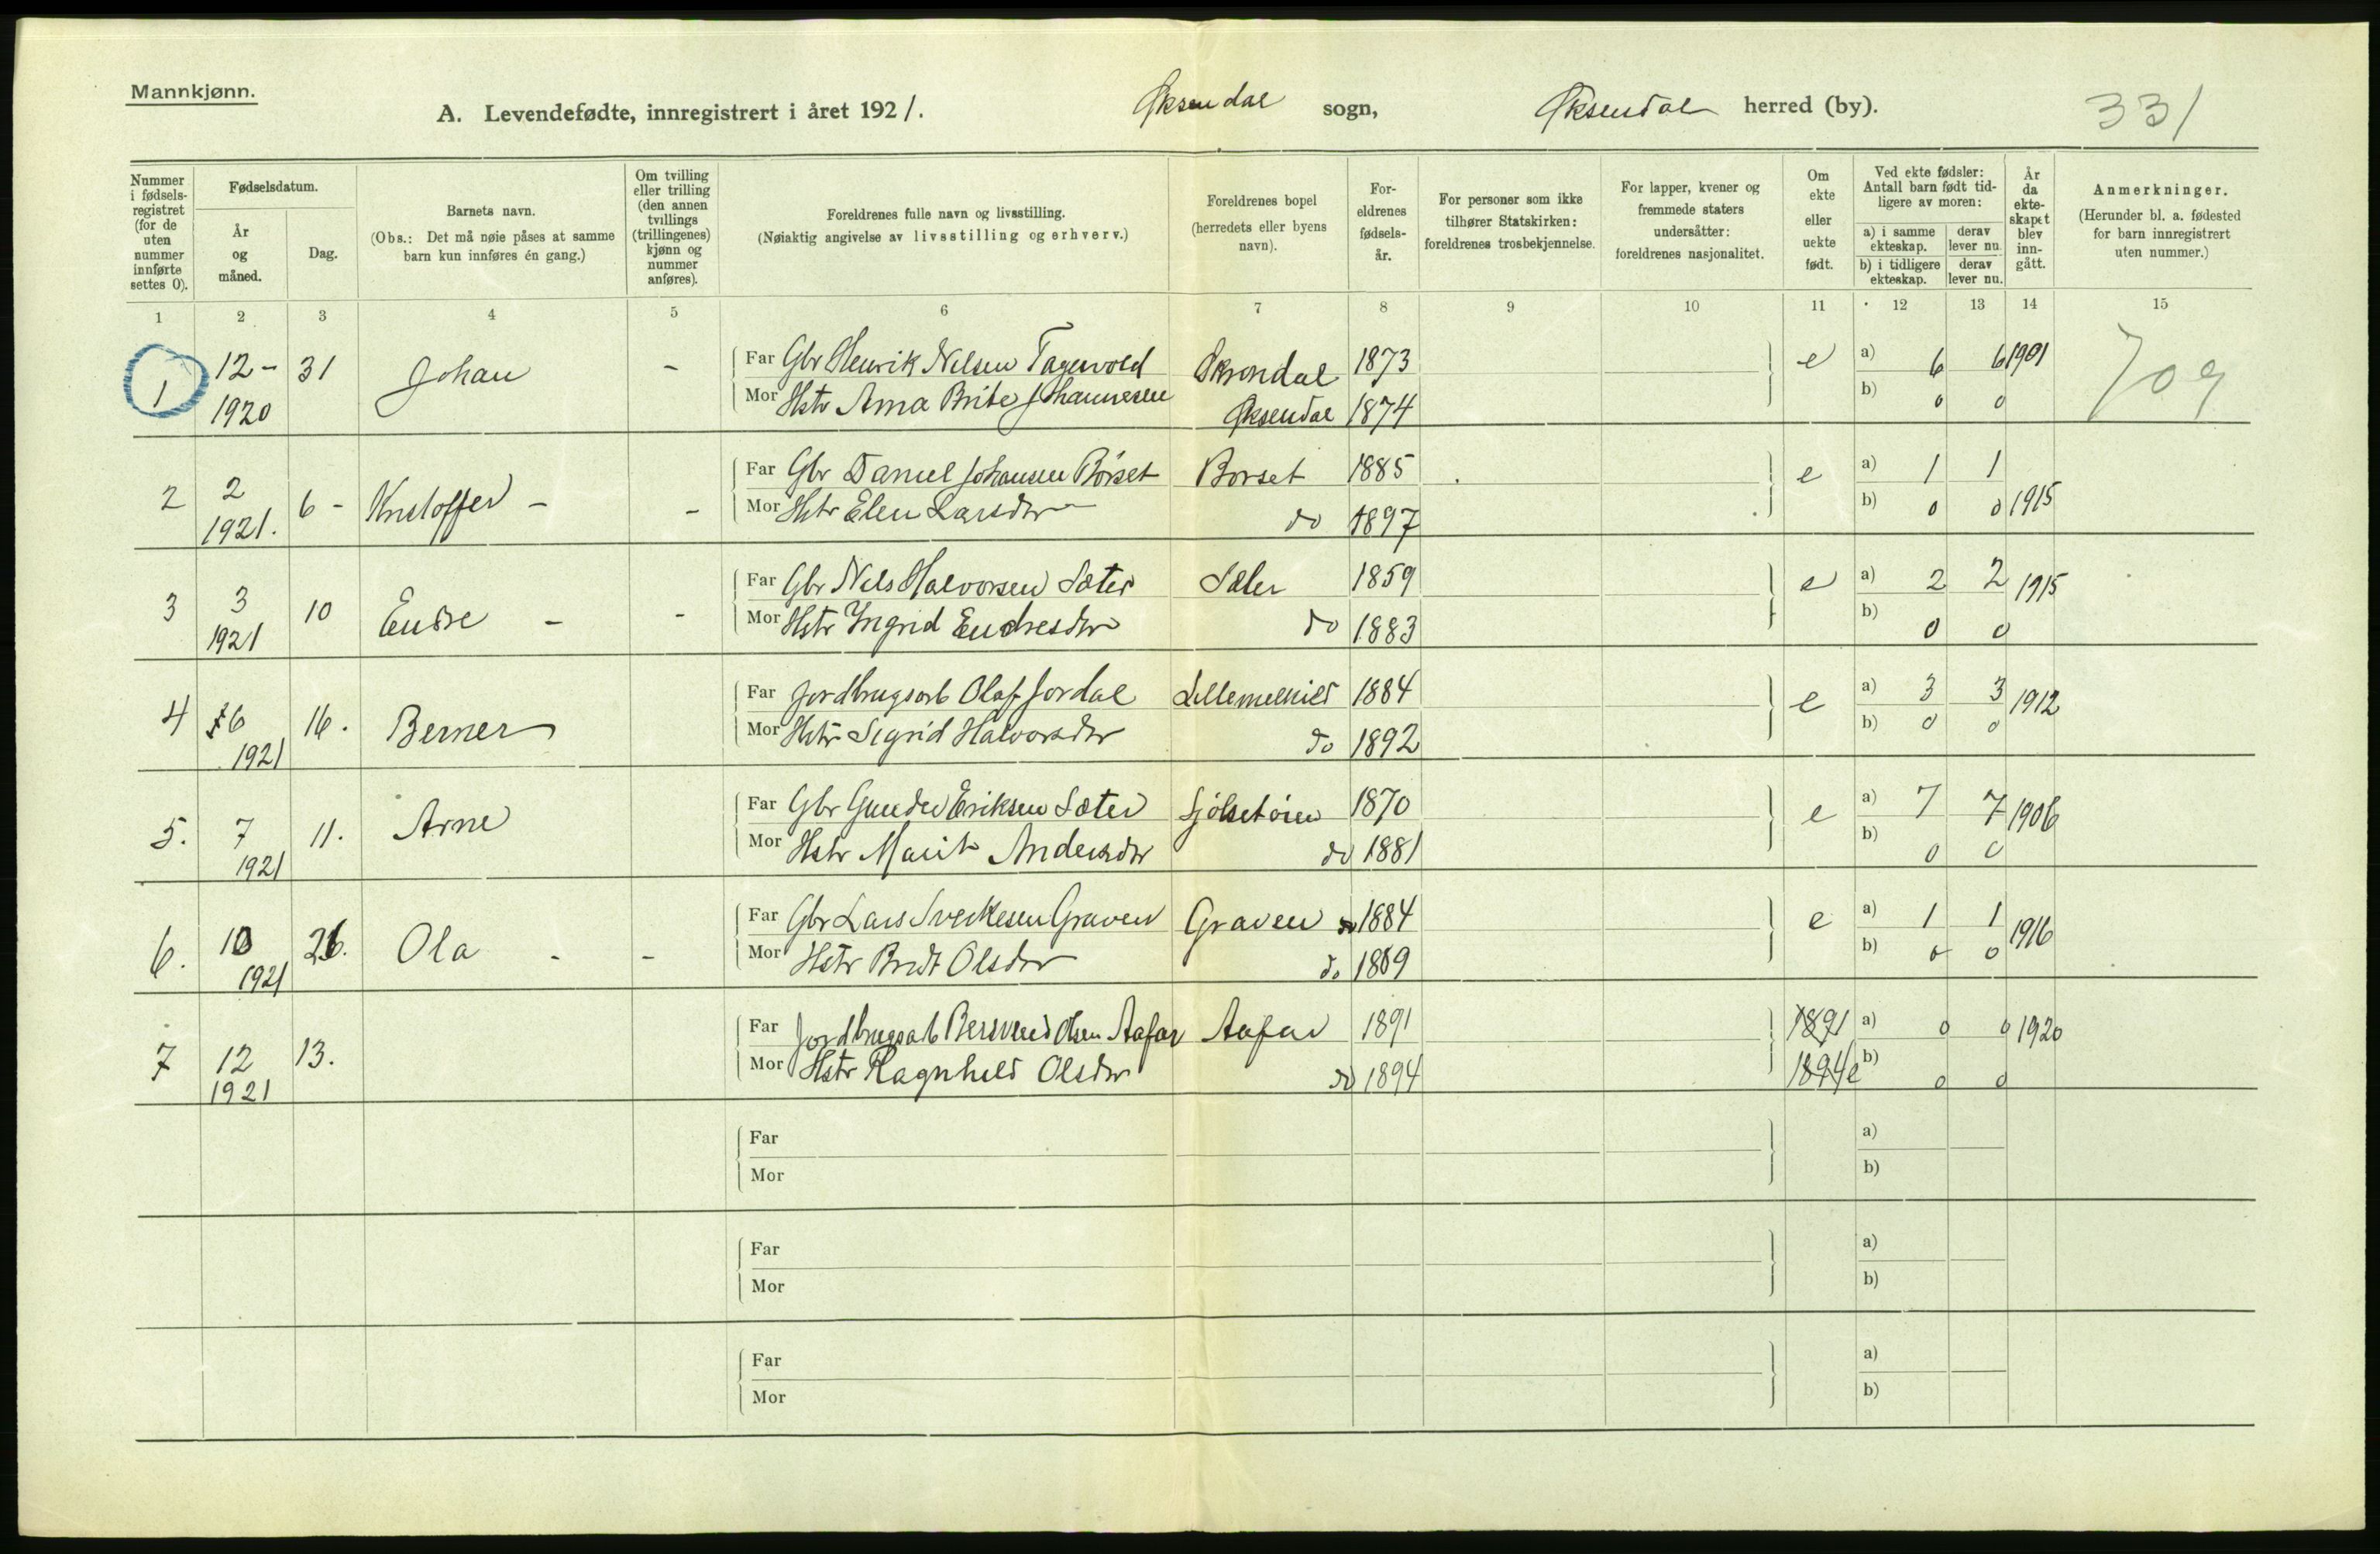 Mannkjønn.
A. Levendefødte, innregistrert i året 1921. Øksendal sogn, Øksendal herred (by). 331
Nummer i fødselsregistret (for de uten nummer innførte settes 0).
Fødselsdatum.
År og måned.
Dag.
Barnets navn.
(Obs.: Det må nøie påses at samme barn kun innføres én gang.)
Om tvilling eller trilling (den annen tvillings (trillingenes) kjønn og nummer anføres).
Foreldrenes fulle navn og livsstilling.
(Nøiaktig angivelse av livsstilling og erhverv.)
Foreldrenes bopel (herredets eller byens navn).
Foreldrenes fødselsår.
For personer som ikke tilhører Statskirken: foreldrenes trosbekjennelse.
For lapper, kvener og fremmede staters undersåtter: foreldrenes nasjonalitet.
Om ekte eller uekte født.
Ved ekte fødsler: Antall barn født tidligere av moren:
a) i samme ekteskap. derav lever nu.
b) i tidligere ekteskap. derav lever nu.
År da ekteskapet blev inngått.
Anmerkninger.
(Herunder bl. a. fødested for barn innregistrert uten nummer.)
1 2 3 4 5 6 7 8 9 10 11 12 13 14 15
1 12- 1920 31 Johan - Far Gbr Henrik Nilsen Øksendal 1873 e a) 6 6 1901 709
Mor Hstr Ama Brite Johannesen Øksendal 1874 b) 0 0
2 2 1921. 6 - Kristoffer - - Far Gbr Daniel Johansen Børset Børset 1885 e a) 1 1
Mor Hstr Elen Larsdtr do 1897 b) 0 0 1915
3 3 1921 10 Endre - - Far Gbr Nils Halvorsen Sæter Sæter 1859 e a) 2 2 1915
Mor Hstr Ingrid Endresdtr do 1883 b) 0 0
4 6 1921 16. Berner Far Jordbrugsarb Olaf Jordal 1884 e a) 3 3 1912
Mor Hstr Sigrid Halvorsdtr do 1892 b) 0 0
5. 7 1921 11. Arne Far Gbr Gunder Eriksen Sæter 1870 e a) 7 7 1906
Mor Hstr Marit Andersdtr do 1881 b) 0 0
6. 10 1921 26. Ola - - Far Gbr Lars Sverkesen Graven Graven 1884 e a) 1 1 1916
Mor Hstr Brit Olsdtr do 1889 b) 0 0
7 12 1921 13. Far Jordbrugsarb Olsen Aafar Aafar 1891 1891 a) 0 0 1920
Mor Hstr Ragnhild Olsdtr do 1894 1894 e b) 0 0
Far a)
Mor b)
Far a)
Mor b)
Far a)
Mor b)